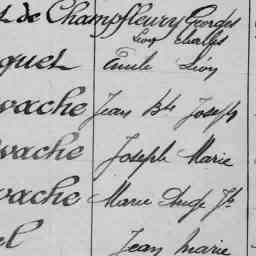 t de Champfleury Georges
Léon Charles
quet Emile Léon
vache Jean Bte Joseph
vache Joseph Marie
vache Marie Ange Jh
el Jean Marie